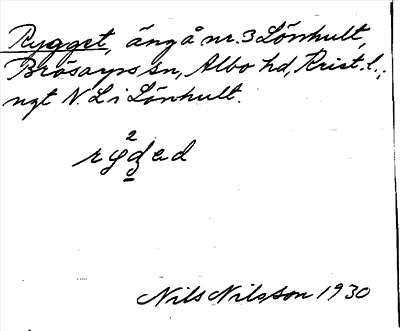 Rygget, äng å nr. 3 Lönhult,
Brösarps sn, Albo hd, Krist. l.;
ngt N. L i Lönhult.
Nils Nilsson 1930